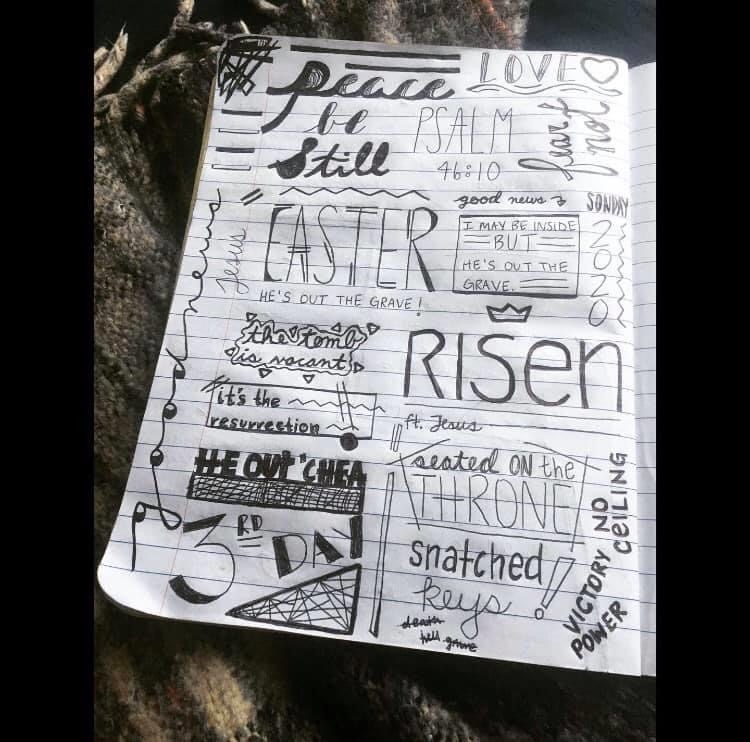 LOVE
Peace
be
Still
PSALM
46:10
fear
not
good news
SUNDAY
2020
Jesus
EASTER
HE'S OUT THE GRAVE!
I MAY BE INSIDE
BUT
HE'S OUT THE
GRAVE.
good news
the tomb
is vacant
RISen
ft. Jesus
it's the
resurrection
HE OUT 'CHEA
seated ON the
THRONE
3RD DAY
snatched
keys!
death
hell grave
VICTORY NO
CEILING
POWER